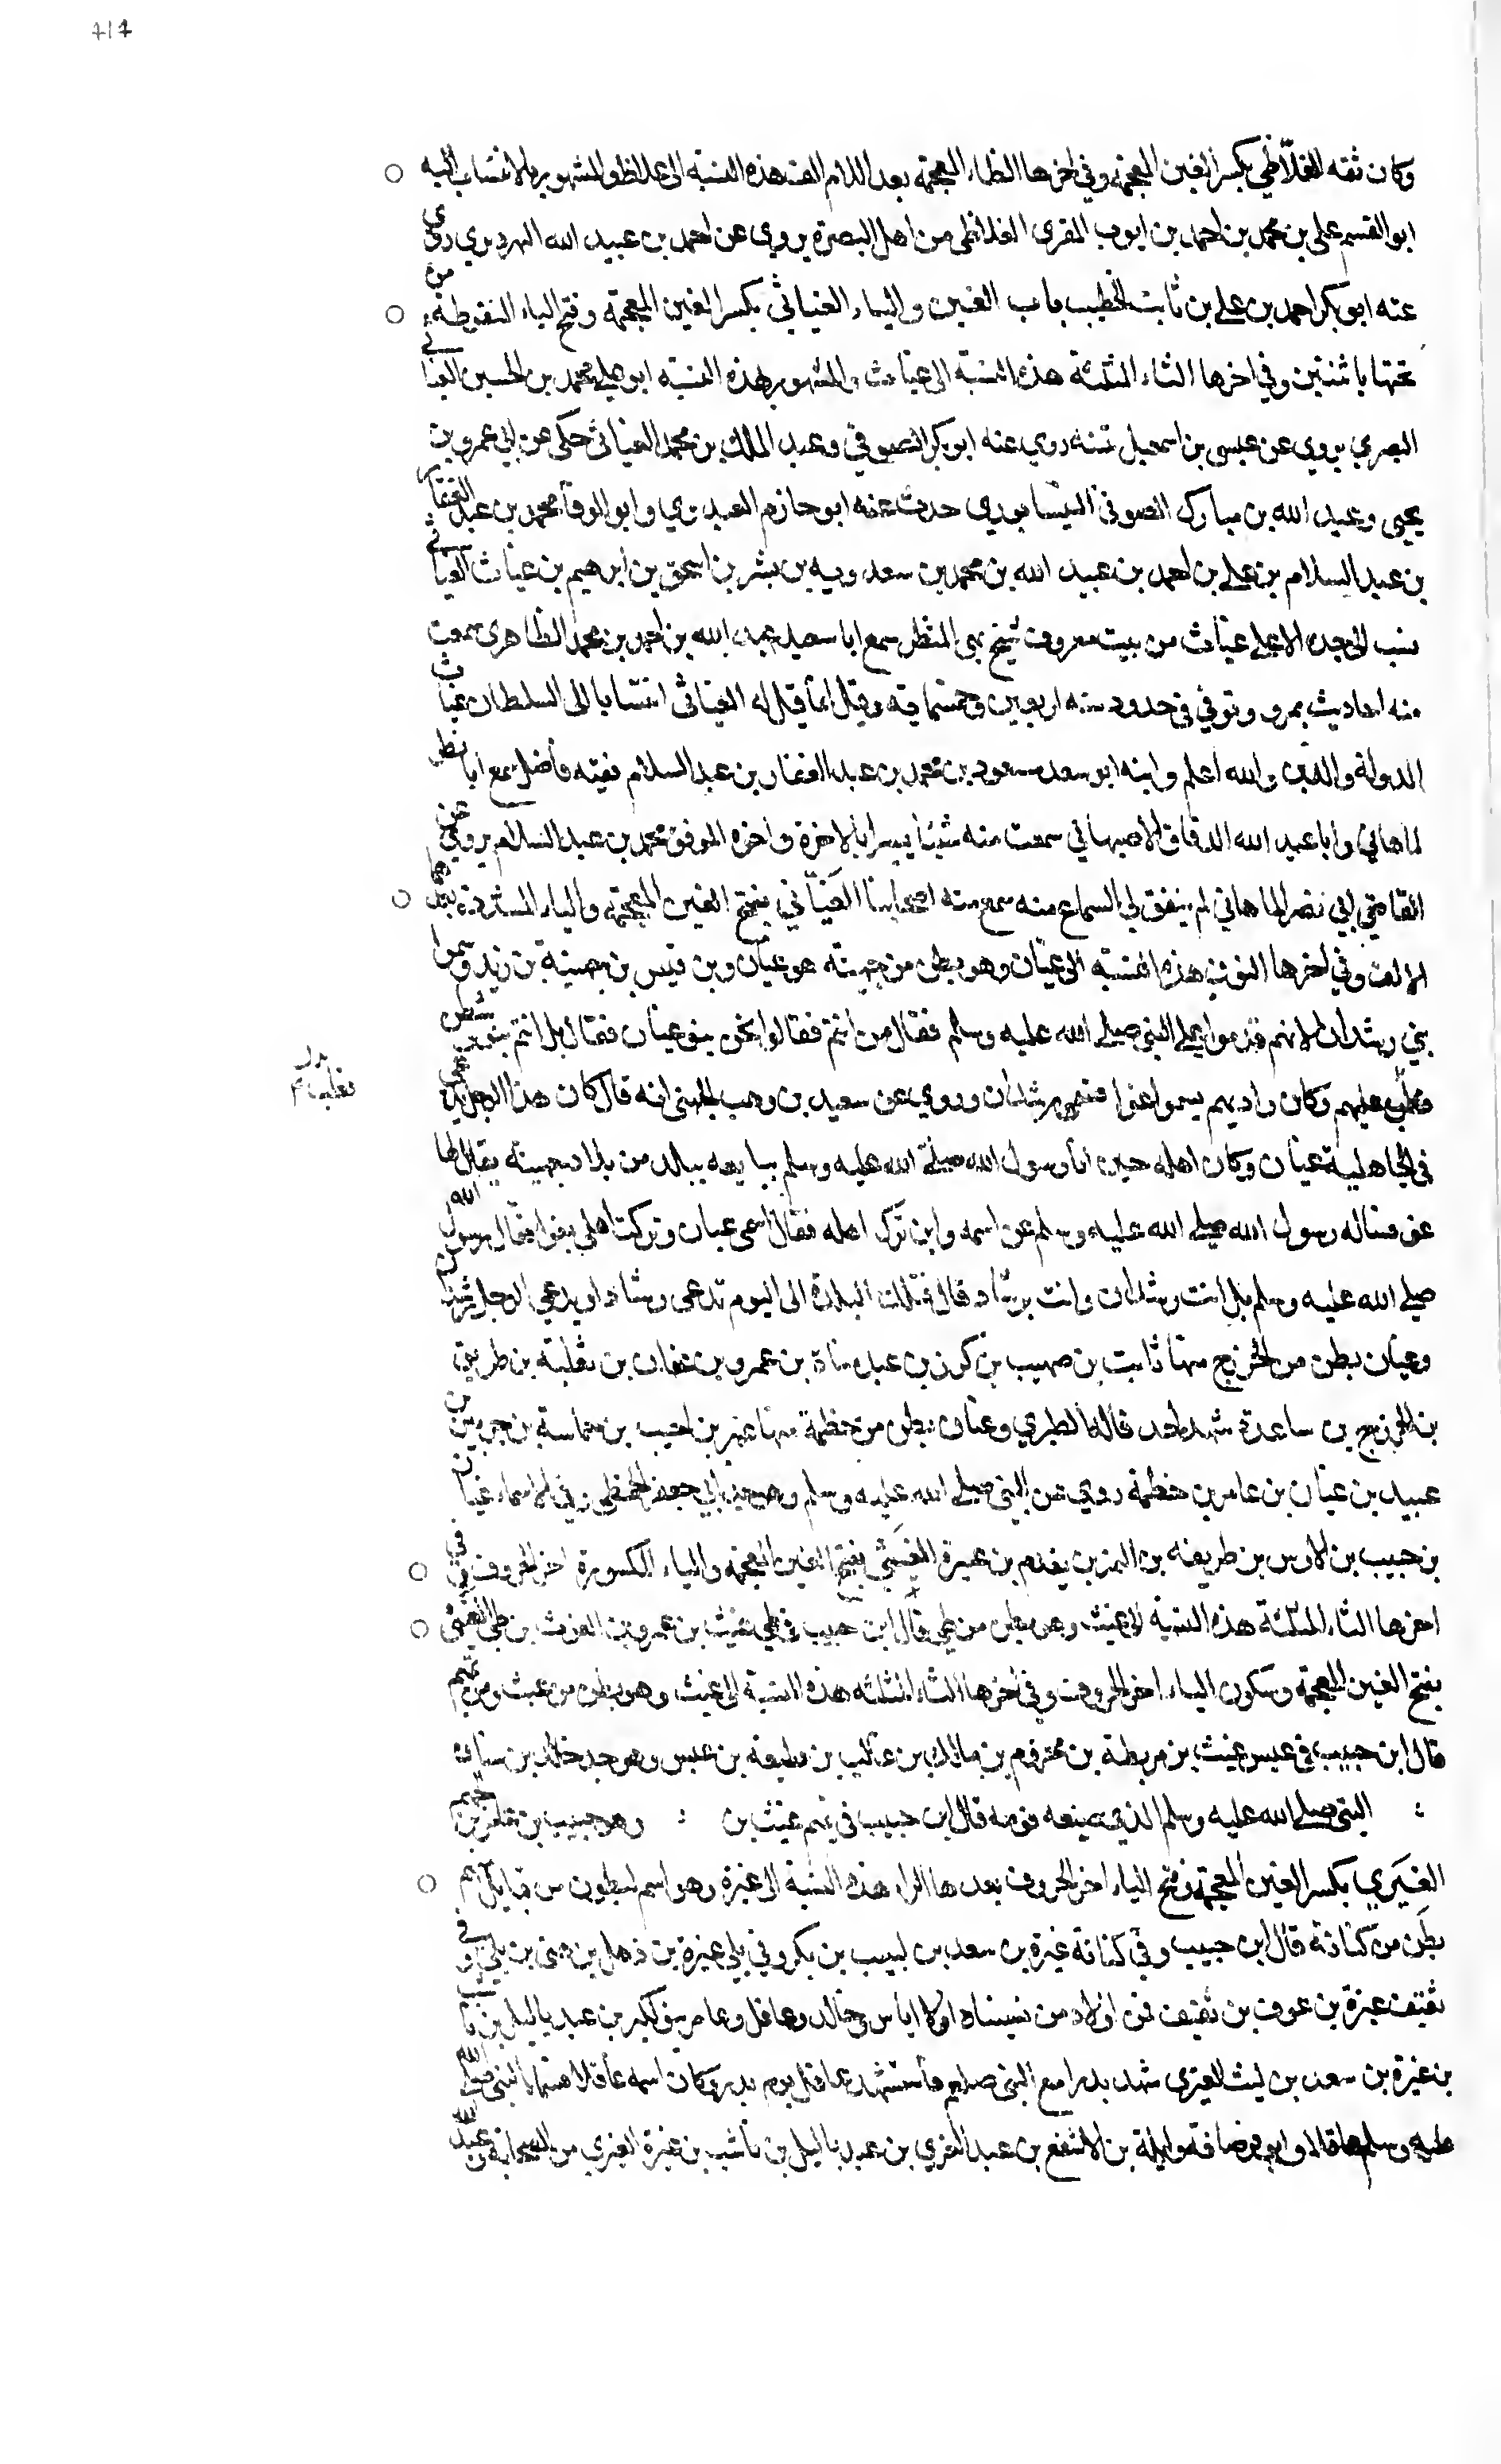 ٤١٤
وكان ثقه الغلاظي بكسر الغين المعجمة وفي اخرها الظاء المعجمة بعد اللام الف هذه النسبة الى غلاظ والمشهور بالانتساب اليه
ابو القسم علي بن محمد بن احمد بن ايوب المقرى الغلاظى من اهل البصرة يروي عن احمد بن عبيد الله النهرديري روى
عنه ابو بكر احمد بن علي بن ثابت الخطيب باب الغين والياء الغياثي بكسر الغين المعجمة وفتح الياء المنقوطة من
تحتها باثنتين وفي اخرها الثاء المثلثة هذه النسبة الى غياث والمشهور بهذه النسبة ابو علي محمد بن الحسين الغياثي
البصري يروي عن عيسى بن اسمعيل تينه روي عنه ابو بكر الصوفي وعبد الملك بن محمد الغياثي حكى عن ابي عمرو بن
يحيى وعبيد الله بن مبارك الصوفي النيسابوري حدث عنه ابو حازم العبدوي وابو الوفا محمد بن عبد الغفار
بن عبد السلام بن علي بن احمد بن عبيد الله بن محمد بن سعدويه بن بشر بن اسحق بن ابرهيم بن غياث الغياثي
نسب الى جده الاعلي غياث من بيت معروف شيخ بهي المنظر سمع ابا سعيد عبد الله بن احمد بن محمد الطاهرى سمعت
منه احاديث بمرو وتوفي في حدود سنه اربعين وخمسمايه وقيل انما قيل له الغياثى انتسابا الى السلطان غياث
الدولة والدين والله اعلم وابنه ابو سعد مسعود بن محمد بن عبد الغفار بن عبد السلام فقيه فاضل سمع ابا نصر
الماهاني وابا عبد الله الدقاق الاصبهاني سمعت منه شيئا يسرا بالاخرة واخوه الموفق محمد بن عبد السلام يروي عن
القاضي ابي نصر الماهاني لم يتفق لي السماع منه سمع منه اصحابنا الغياني بفتح الغين المعجمة والياء المشددة بعدهما
الالف وفي اخرها النون هذه النسبة الى غيان وهو بطن من جهينه هو غيان بن قيس بن جهينة بن زيد وسموا
بني رشدان لانهم قدموا على النبي صلي الله عليه وسلم فقال من انتم فقالوا نحن بنو غيان فقال بل انتم بنو رشدان
فغلب عليهم وكان واديهم يسموا غوا فسمي رشدان وروي عن سعيد بن وهب الجهني انه قال كان هذا الرجل يدعى
بدل فغلب
في الجاهلية غيان وكان اهله حين اتا رسول الله صلى الله عليه وسلم يبايعه ببلد من بلاد جهينه يقال لها
غوى فساله رسول الله صلي الله عليه وسلم عن اسمه واين ترك اهله فقال اسمى غيان وتركت اهلي بغوا فقال رسول الله
صلي الله عليه وسلم بل انت رشدان وانت برشاد قال فتلك البلدة الى اليوم تدعى رشاد او يدعى الرجل رشدان
وغيان بطن من الخزرج منها ثابت بن صهيب بن كرز بن عبد مناة بن عمرو بن غيان بن ثعلبة بن طريف
بن الخزرج بن ساعدة شهد احد قاله الطبري وغيان بطن من خطمة منها عمير بن حبيب بن خماسة بن جويبر بن
عبيد بن غيان بن عامر بن خطمة روي عن النبى صلي الله عليه وسلم وهو جد ابي جعفر الخطمي وفي الاسماء غيان
بن حبيب بن الاوس بن طريف بن النمر بن يقدم بن عنزة الغيثي بفتح الغين المعجمة والياء المكسورة اخر الحروف وفي
اخرها الثاء المثلثة هذه النسبة الى غيث وهو بطن من طي قال ابن حبيب في طي غيث بن عمرو بن الغوث بن طى الغيثى
بفتح الغين المعجمة وسكون الياء اخر الحروف وفي اخرها الثاء المثلثه هذه النسبة الى غيث وهو بطن من عبس ومن تميم
قال ابن حبيب في عبس غيث بن مريطة بن مخزوم بن مالك بن غالب بن قطيعة بن عبس وهو جد خالد بن سنان
: النبى صلي الله عليه وسلم الذي ضيعه قومه قال ابن حبيب في تميم غيث بن : وهو حبيب بن عامر بن الهجيم
الغيري بكسر الغين المعجمة وفتح الياء اخر الحروف بعدها الراء هذه النسبة الى غيرة وهو اسم لبطون من قبايل
بطن من كنانة قال ابن حبيب وفي كنانة غيرة بن سعد بن ليث بن بكر وفي بلي غيرة بن ذهل بن هنى بن بلي وفي
ثقيف غيرة بن عوف بن ثقيف فمن اولاد من نسبناه اولا اياس وخالد وعاقل وعامر بنو بكير بن عبد ياليل بن ناشب
بن غيرة بن سعد بن ليث الغيرى شهد بدرا مع النبى صلعم فاستشهد عاقل يوم بدر وكان اسمه غافلا فسماه النبى صلى الله
عليه وسلم عاقلا وابو قرصافة واثلة بن الاسقع بن عبد العزي بن عبد ياليل بن ناشب بن غيرة الغيري من الصحابة وعبد الله